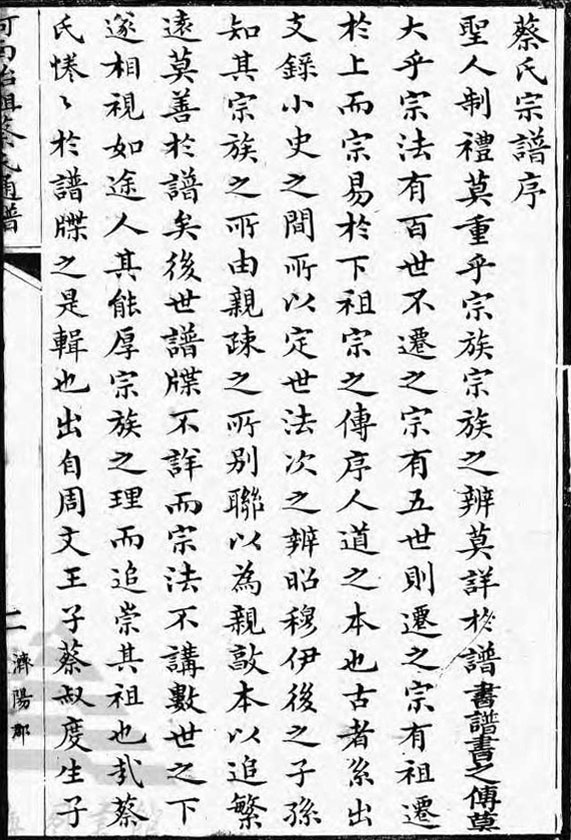 蔡氏宗譜序
聖人制禮莫重乎宗族宗族之辨莫詳於譜書譜書之傳莫
大乎宗法有百世不遷之宗有五世則遷之宗有祖遷
於上而宗易於下祖宗之傳序人道之本也古者系出
支錄小史之間所以定世法次之辨昭穆伊後之子孫
知其宗族之所由親疎之所別聯以為親敲本以追繁
遠莫善於譜矣後世譜牒不詳而宗法不講數世之下
遂相視如途人其能厚宗族之理而追崇其祖也哉蔡
氏惓〻於譜牒之是輯也出自周文王子蔡叔度生子
蔡氏通譜
二
濟陽郡